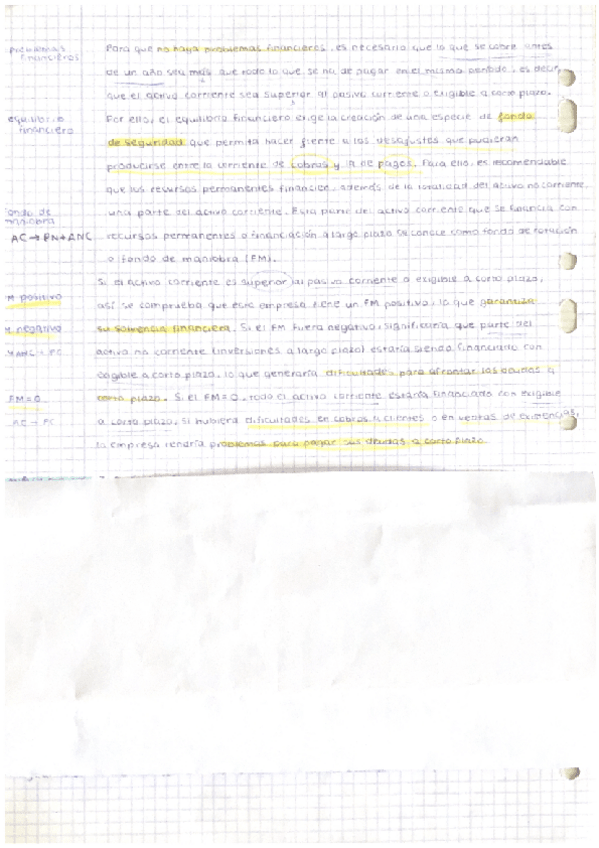 problemas
financieros
Para que no haya problemas financieros, es necesario que lo que se cobre antes
de un año sea más que todo lo que se ha de pagar en el mismo período, es decir,
que el activo corriente sea superior al pasivo corriente o exigible a corto plazo.
equilibrio
financiero
Por ello, el equilibrio financiero exige la creación de una especie de fondo
de seguridad que permita hacer frente a los desajustes que pudieran
producirse entre la corriente de cobros y la de pagos. Para ello, es recomendable
que los recursos permanentes financien, además de la totalidad del activo no corriente,
fondo de
maniobra
una parte del activo corriente. Esta parte del activo corriente que se financia con
AC → PN + ANC
recursos permanentes o financiación a largo plazo se conoce como fondo de rotación
o fondo de maniobra (FM).
Si el activo corriente es superior al pasivo corriente o exigible a corto plazo,
M positivo
así se comprueba que esta empresa tiene un FM positivo, lo que garantiza
M negativo
su solvencia financiera. Si el FM fuera negativo, significaría que parte del
activo no corriente (inversiones a largo plazo) estaría siendo financiado con
exigible a corto plazo, lo que generaría dificultades para afrontar las deudas a
FM=0
corto plazo. Si el FM=0, todo el activo corriente estaría financiado con exigible
AC = PC
a corto plazo, si hubiera dificultades en cobros a clientes o en ventas de existencias,
la empresa tendría problemas para pagar sus deudas a corto plazo